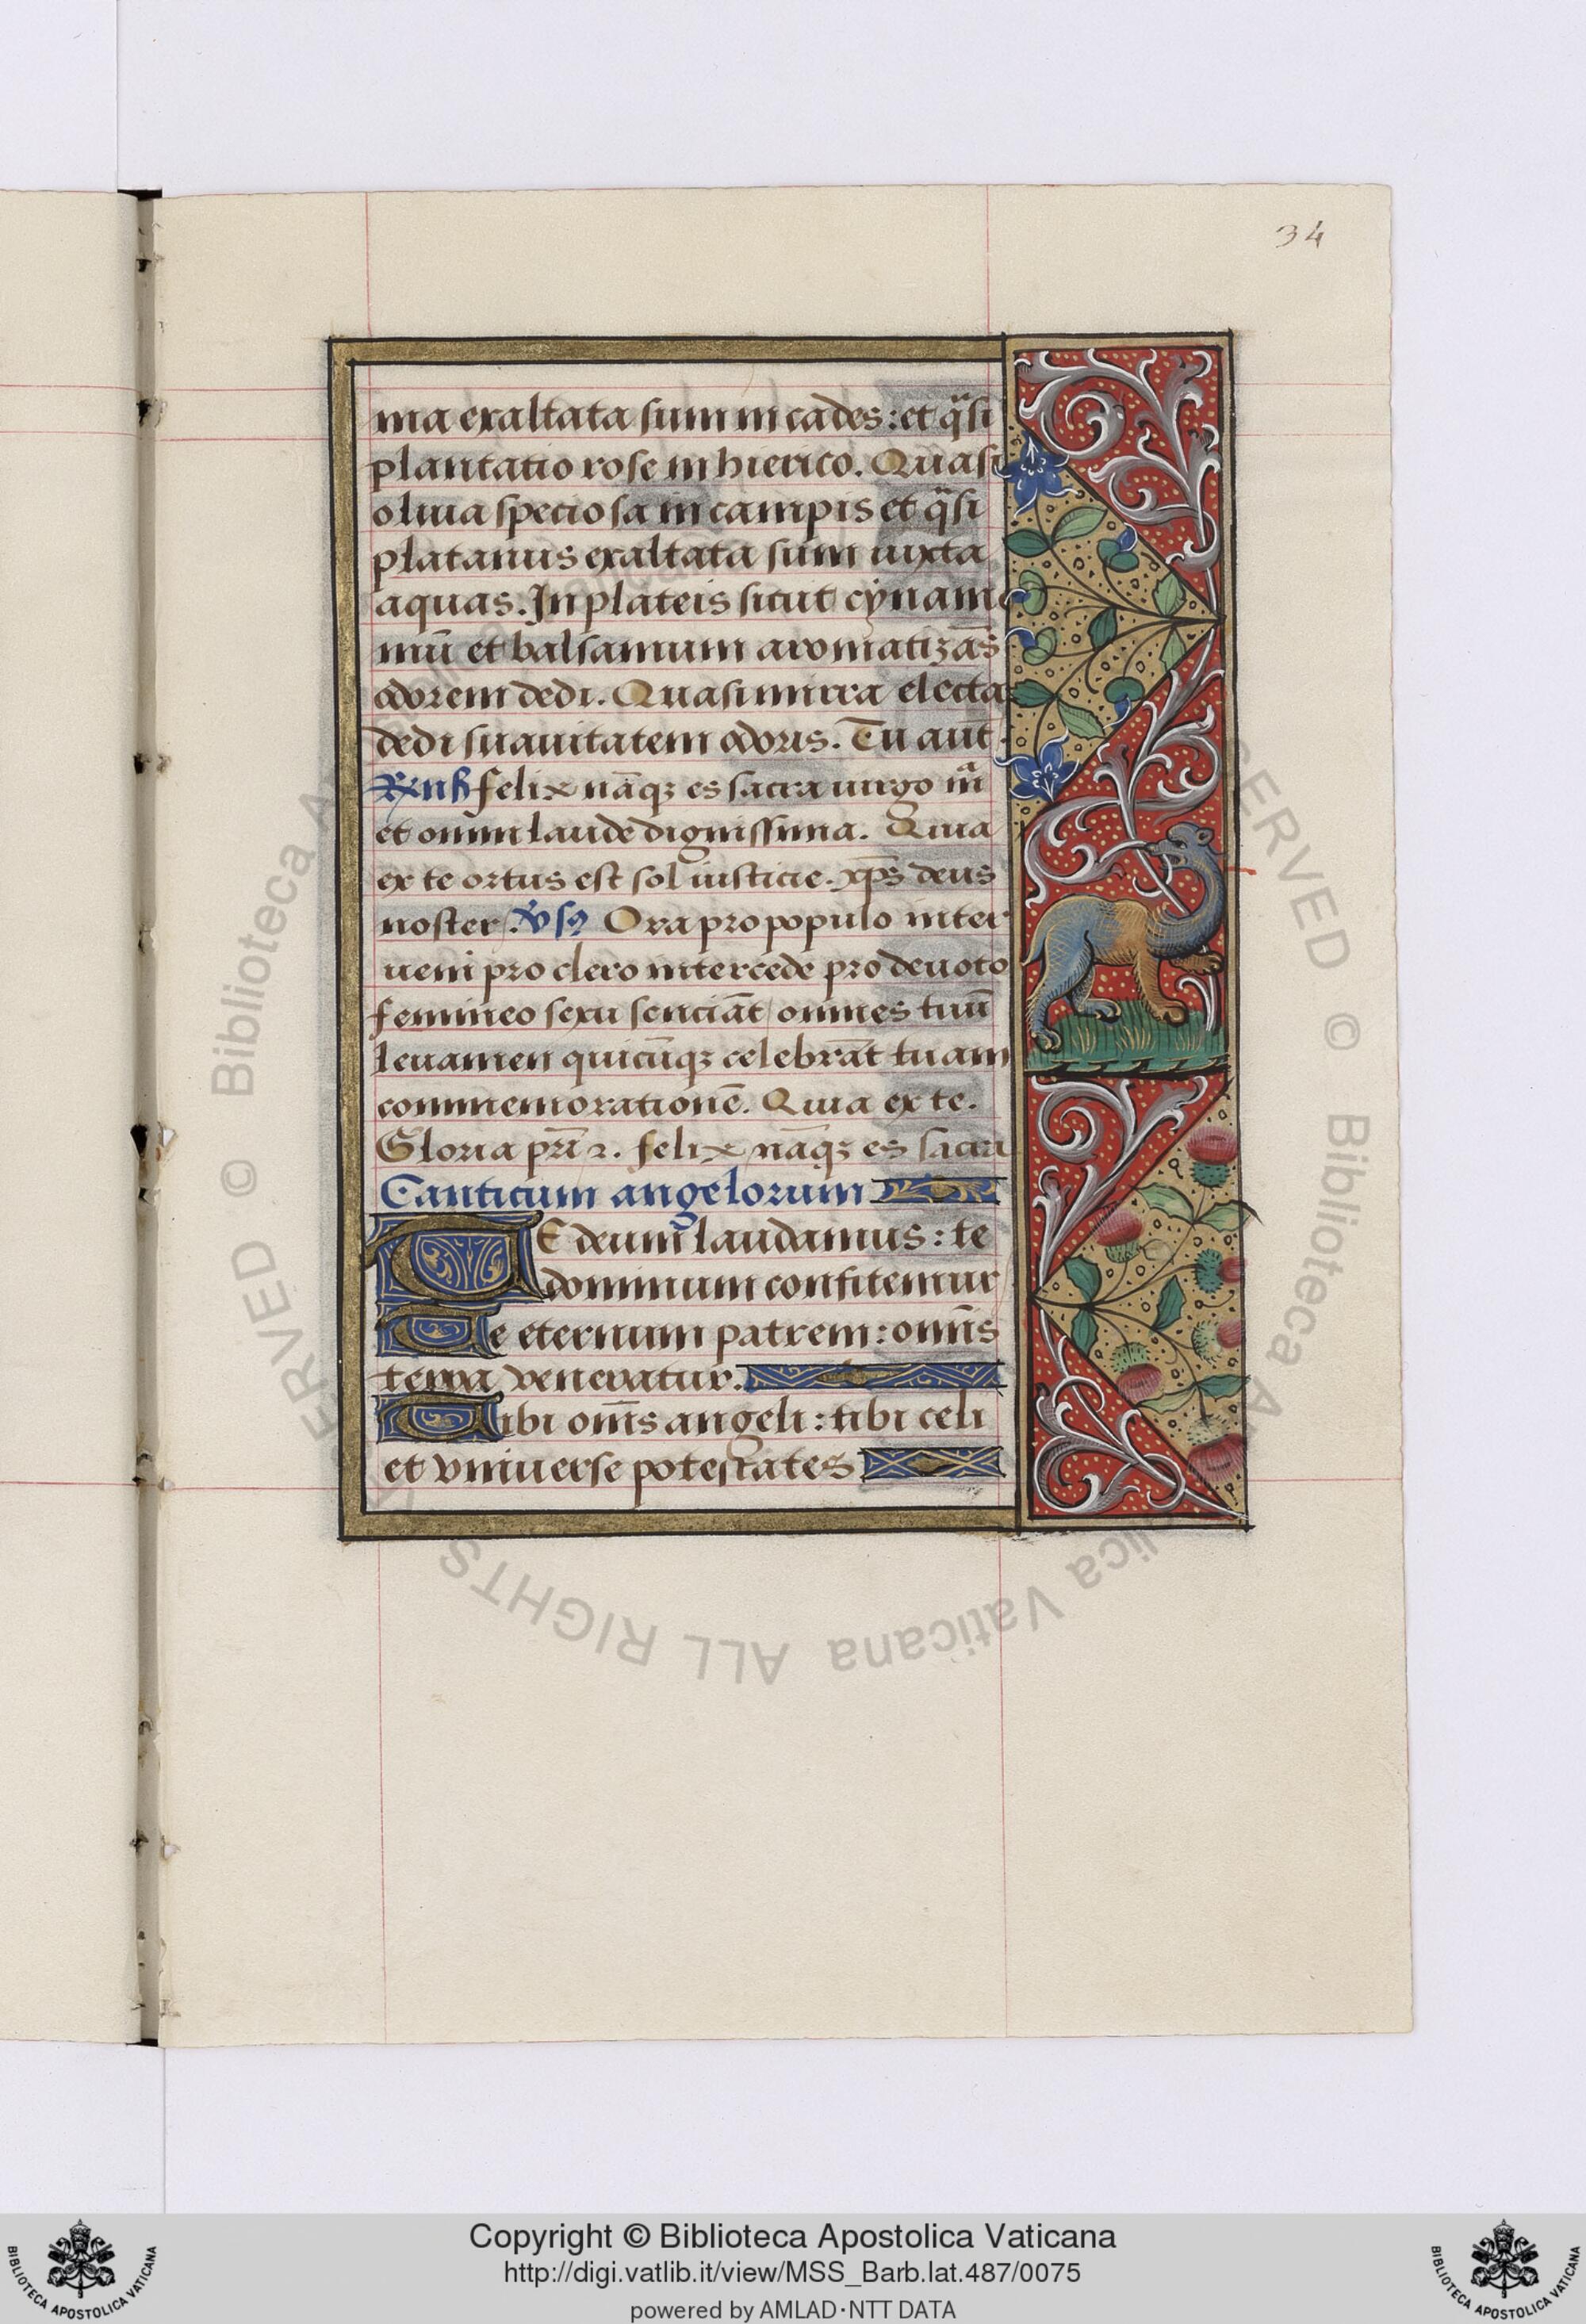 34
ma exaltata sum in cades : et q̃si
plantatio rose in hierico. Quasi
oliua speciosa in campis et q̃si
platanus exaltata sum iuxta
aquas. In plateis sicut cynamo
mũ et balsamum aromatizãs
odorem dedi. Quasi mirra electa
dedi suauitatem odoris. Tu aut̃.
felix nãqꝫ es sacra uirgo m̃a
et omni laude dignissima. Quia
ex te ortus est sol iusticie. xp̃s deus
noster. Ora pro populo inter
ueni pro clero intercede pro deuoto
femineo sexu senciãt omnes tuũ
leuamen quicũqꝫ celebrãt tuam
commemorationẽ. Quia ex te.
Gloria pr̃i ꝛ. felix nãqꝫ es sacra
Canticum angelorum
TE deum laudamus : te
dominum confitemur
Te eternum patrem : omñis
terra veneratur.
Tibi om̃s angeli : tibi celi
et vniuerse potestates
BIBLIOTECA APOSTOLICA VATICANA
Copyright © Biblioteca Apostolica Vaticana
http://digi.vatlib.it/view/MSS_Barb.lat.487/0075
powered by AMLAD·NTT DATA
BIBLIOTECA APOSTOLICA VATICANA